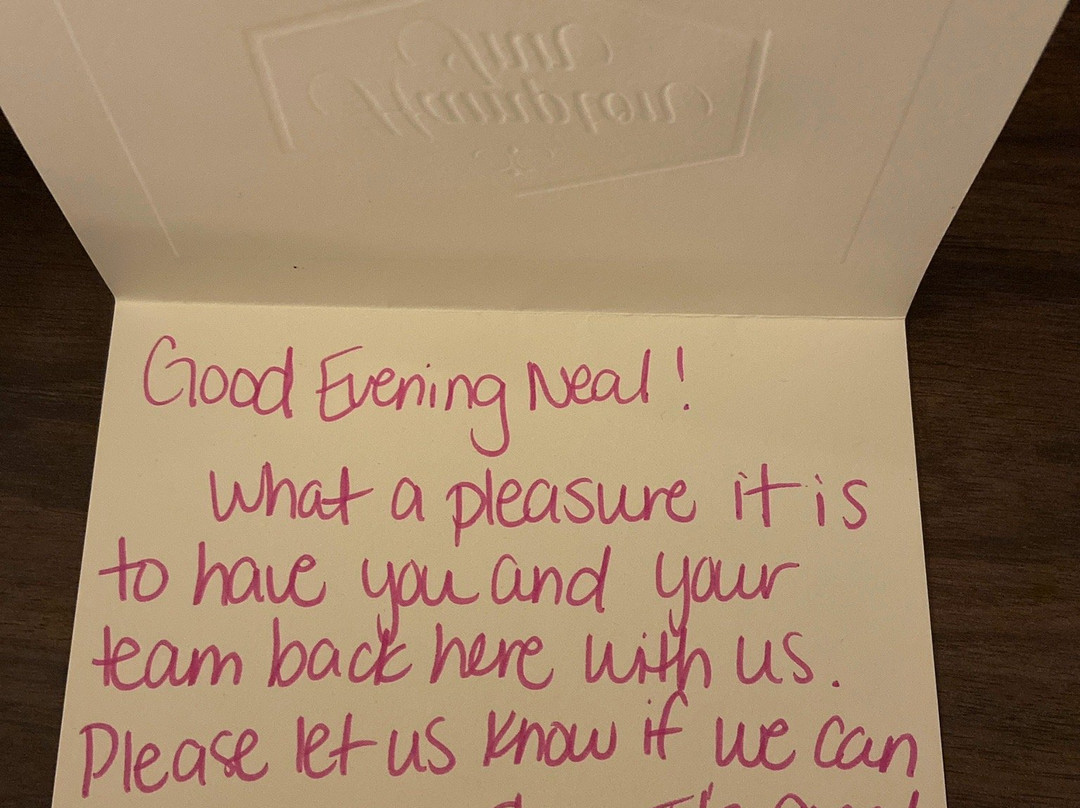 Inn
Hampton
Good Evening Neal!
What a pleasure it is
to have you and your
team back here with us.
Please let us know if we can